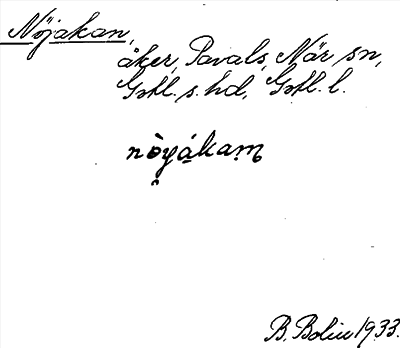 Nöjåkan,
åker, Pavals, När sn,
Gotl. s. hd, Gotl. l.
nòyákam
B. Bolin 1933.